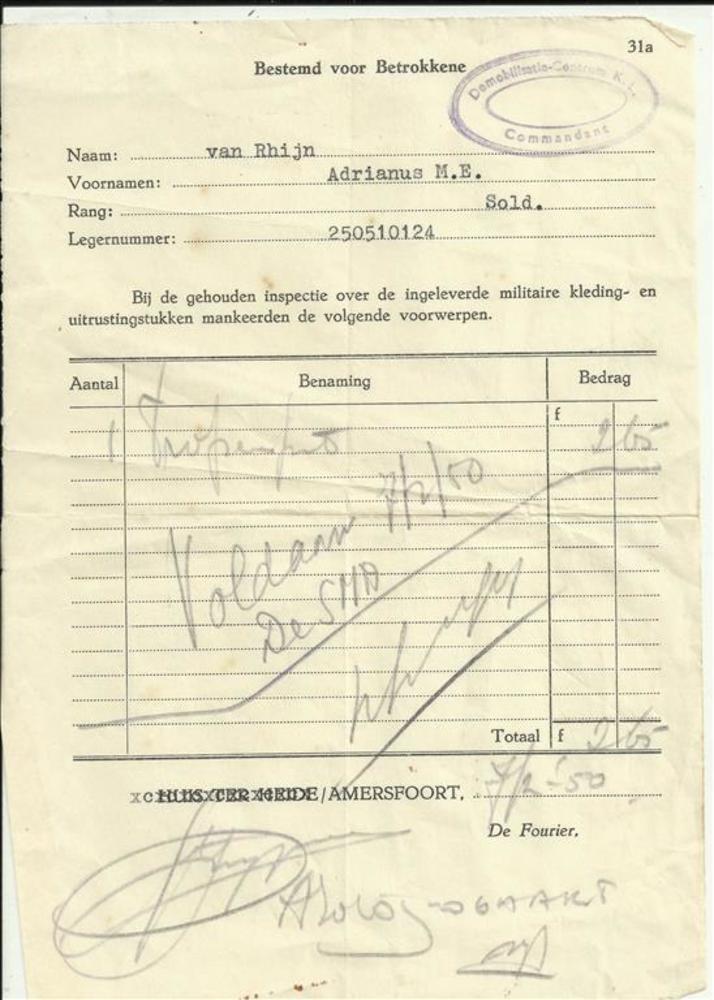 31a
Bestemd voor Betrokkene
Demobilisatie-Centrum K.L.
Commandant
Naam: van Rhijn
Voornamen: Adrianus M.E.
Rang: Sold.
Legernummer: 250510124
Bij de gehouden inspectie over de ingeleverde militaire kleding- en
uitrustingstukken mankeerden de volgende voorwerpen.
Aantal Benaming Bedrag
f
1 2 65
Voldaan 7/2/50
De SMA
Totaal f 2 65
HUIS TER HEIDE/AMERSFOORT, 7/2-'50
De Fourier,